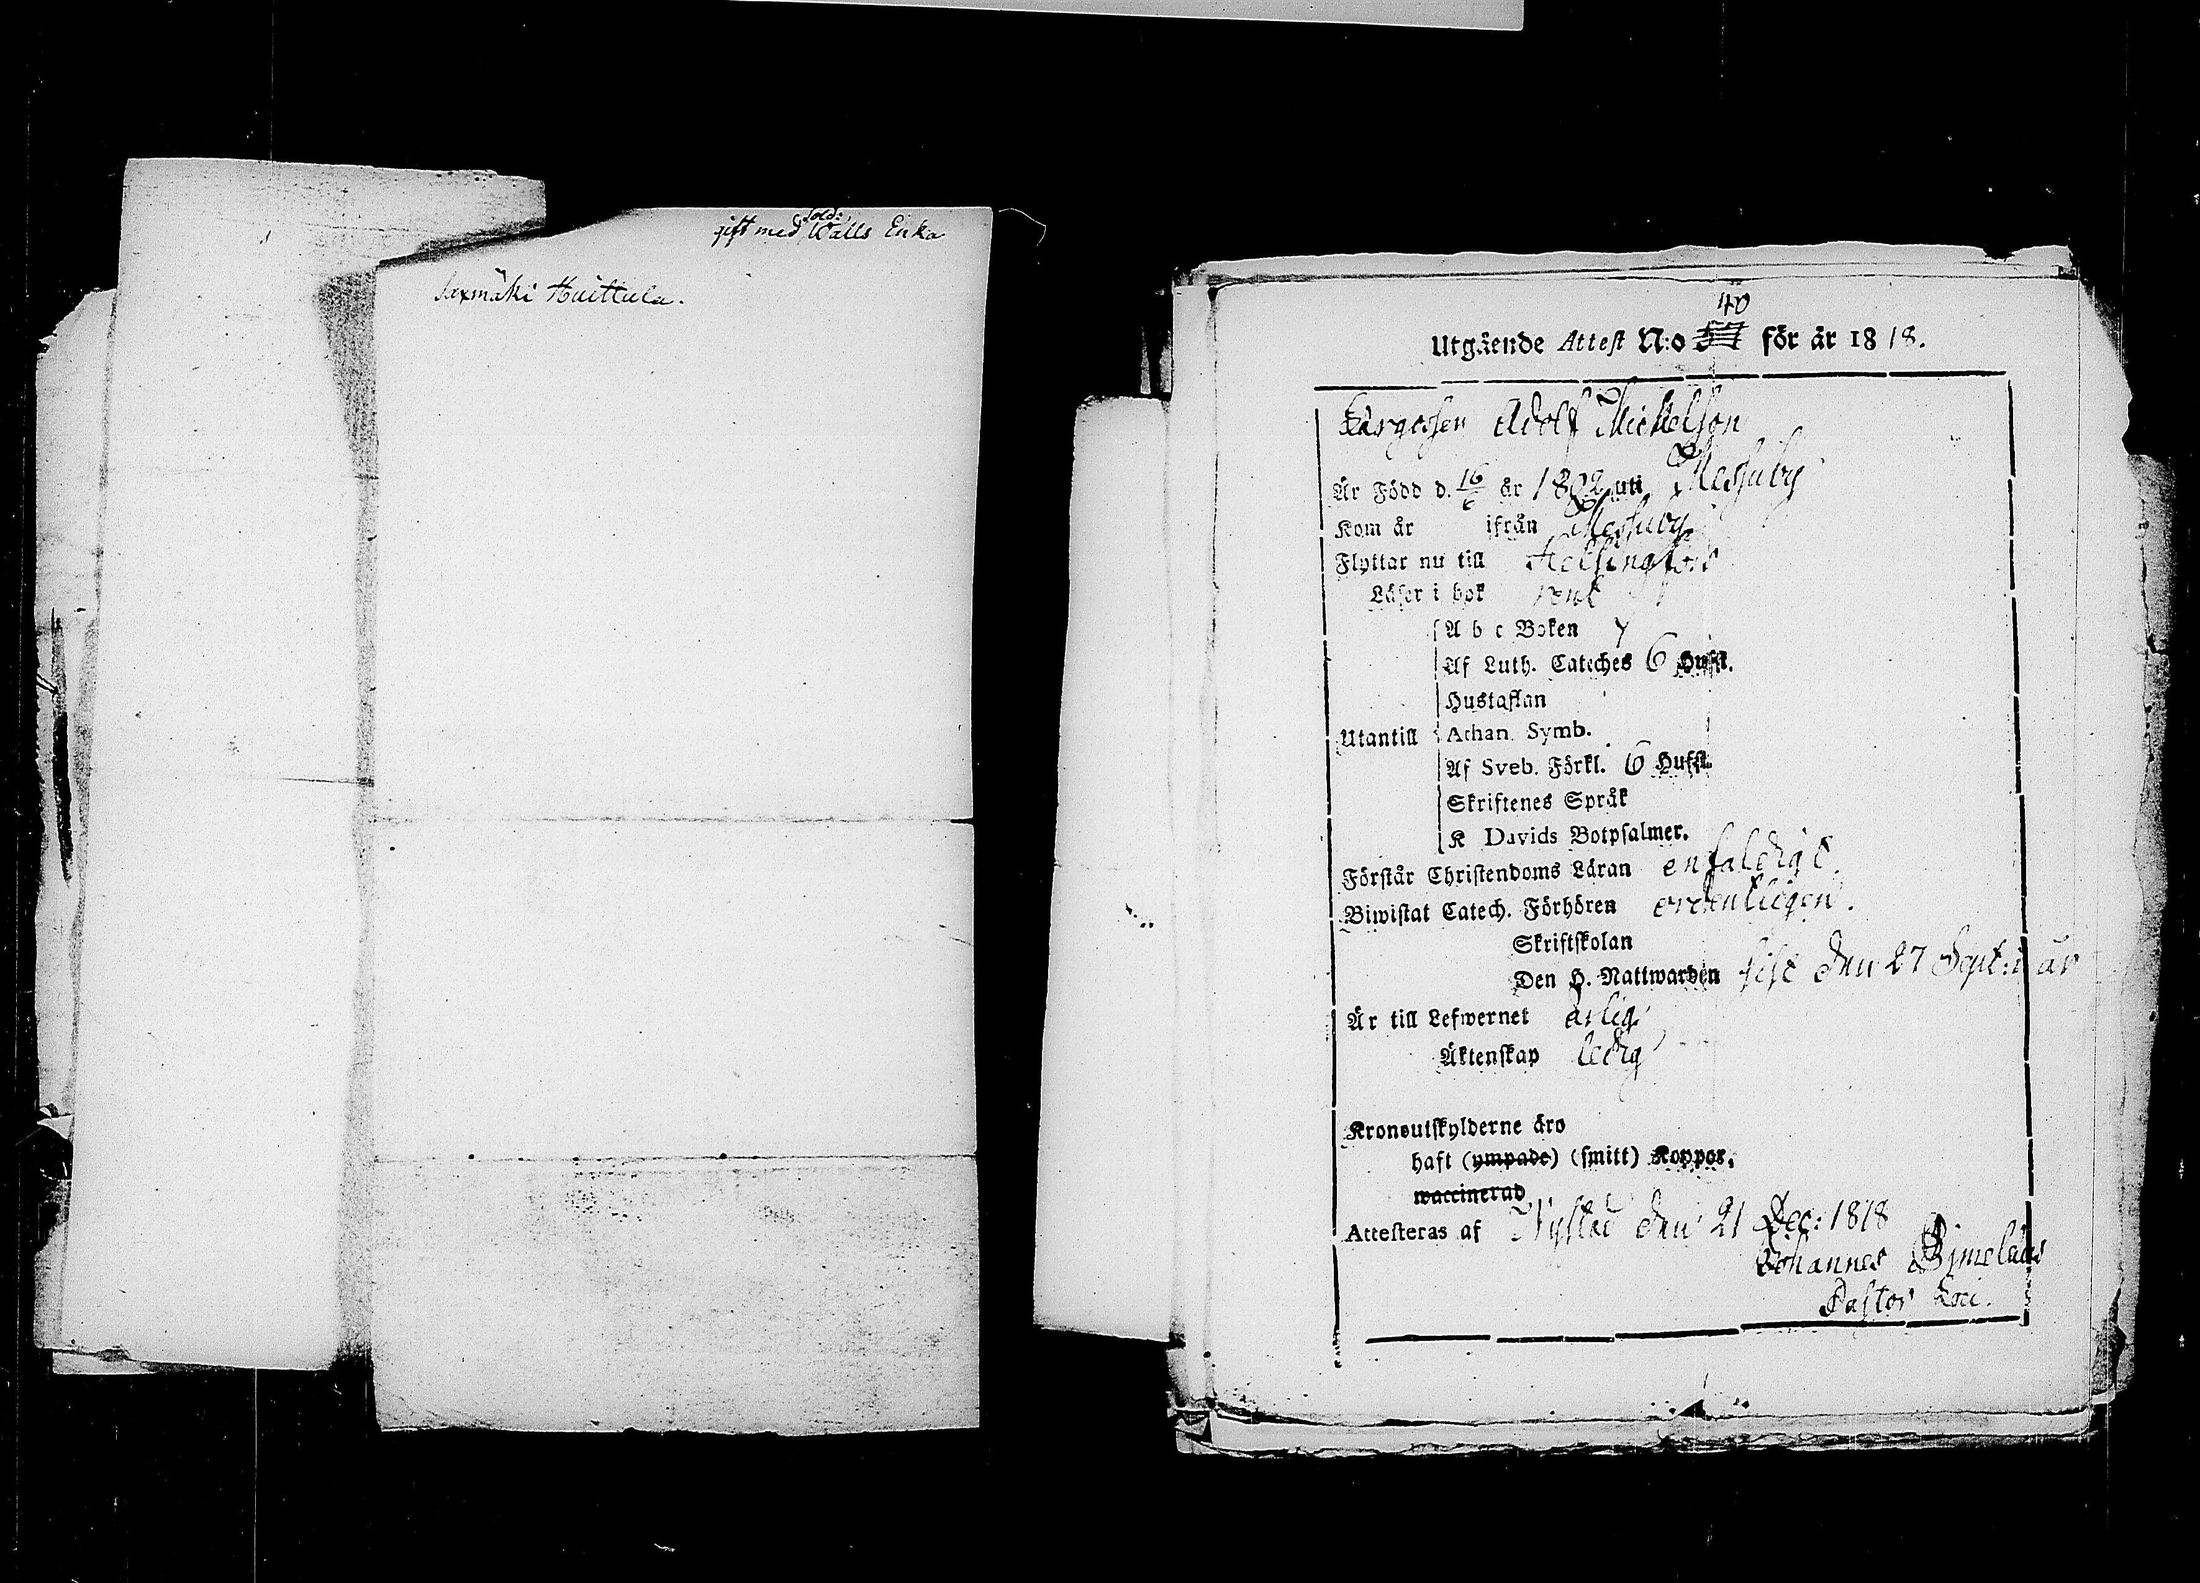 gift med Sold: Walls Enka
Saxmäki Huittula.
40
Utgående Attest N:o för år 1818.
Färgossen Adolf Mickelson
Är Född d. 16/6 år 1802 uti Messuby
Kom år ifrån Messuby
Flyttar nu till Helsingfors
Läser i bok rent
A b c Boken
Af Luth. Cateches 6 Hufst.
Hustaflan
Utantill Athan. Symb.
Af Sveb. Förkl. 6 Hufst.
Skriftenes Språk
K Davids Botpsalmer.
Förstår Christendoms Läran enfaldigt.
Biwistat Catech. Förhören ordenteligen.
Skriftskolan
Den H. Nattwarden sist den 27 Sept: i år
Är till Lefwernet ärlig
Äktenskap ledig
Kronoutskylderne äro
haft (ympade) (smitt) Koppor.
waccinerad
Attesteras af Nystad den 21 Dec: 1818
Johannes
Pastor Loci.